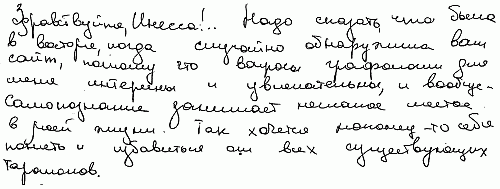 Здравствуйте, Инесса!.. Надо сказать, что была
в восторге, когда случайно обнаружила ваш
сайт, потому что вопросы графологии для
меня интересны и увлекательны, и вообще
самопознание занимает немалое место
в моей жизни. Так хочется наконец-то себя
понять и избавиться от всех существующих
тараканов.